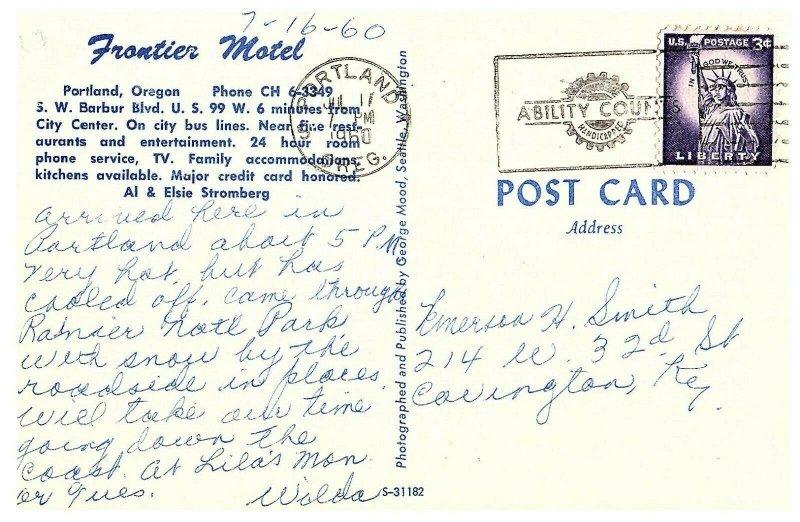 7-16-60
Frontier Motel
Portland, Oregon Phone CH 6-3349
S. W. Barbur Blvd. U. S. 99 W. 6 minutes from
City Center. On city bus lines. Near fine rest-
aurants and entertainment. 24 hour room
phone service, TV. Family accommodations,
kitchens available. Major credit card honored.
Al & Elsie Stromberg
arrived here in
Portland about 5 PM
very hot, but has
cooled off. came through
Rainier Natl Park
with snow by the
roadside in places.
will take our time
going down the
coast. at Lila's Mon.
or Tues.
Wilda
Photographed and Published by George Mood, Seattle, Washington
S-31182
PORTLAND
PM
1960
OREG.
ABILITY COUNTS
HANDICAPPED
U.S. POSTAGE 3¢
IN GOD WE TRUST
LIBERTY
POST CARD
Address
Emerson H. Smith
214 W. 32d. St
Covington, Ky.